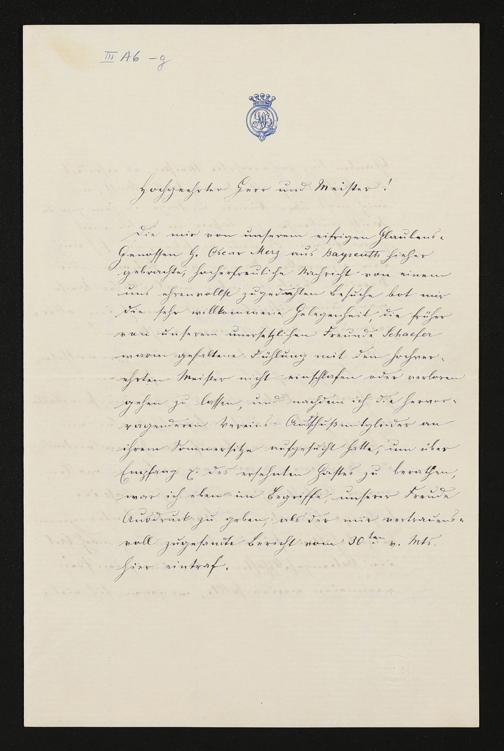 III A6 -g
Hochgeehrter Herr und Meister!
Die mir von unserem eifrigen Glaubens-
Genossen H. Oscar Merz aus Bayreuth hieher
gebrachte, hocherfreuliche Nachricht von einem
uns ehrenvollst zugedachten Besuche bot mir
die sehr willkommene Gelegenheit, die früher
von unserem unersetzlichen Freunde Schaefer
warm gehaltene Fühlung mit dem hochver-
ehrten Meister nicht einschlafen oder verloren
gehen zu lassen, und nachdem ich die hervor-
ragenderen Vereins-Ausschußmitglieder an
ihrem Sommersitze aufgesucht hatte, um über
Empfang p. des ersehnten Gastes zu berathen,
war ich eben im Begriffe, unserer Freude
Ausdruck zu geben, als der mir vertrauens-
voll zugesandte Bericht vom 30ten v. Mts.
hier eintraf.